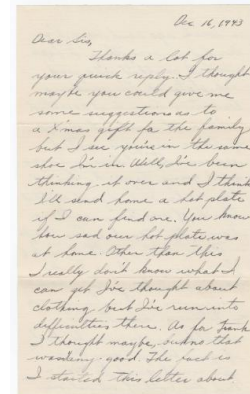 Dec 16, 1943
Dear Sis,
Thanks a lot for
your quick reply. I thought
maybe you could give me
some suggestions as to
a Xmas gift for the family
but I see you're in the same
shoe I'm in. Well, I've been
thinking it over and I think
I'll send home a hot plate
if I can find one. You know
how sad our hot plate was
at home. Other than this
I really don't know what I
can get. I've thought about
clothing but I've run into
difficulties there. As for Frank
I thought maybe, that
good. The fact is
I started this letter about